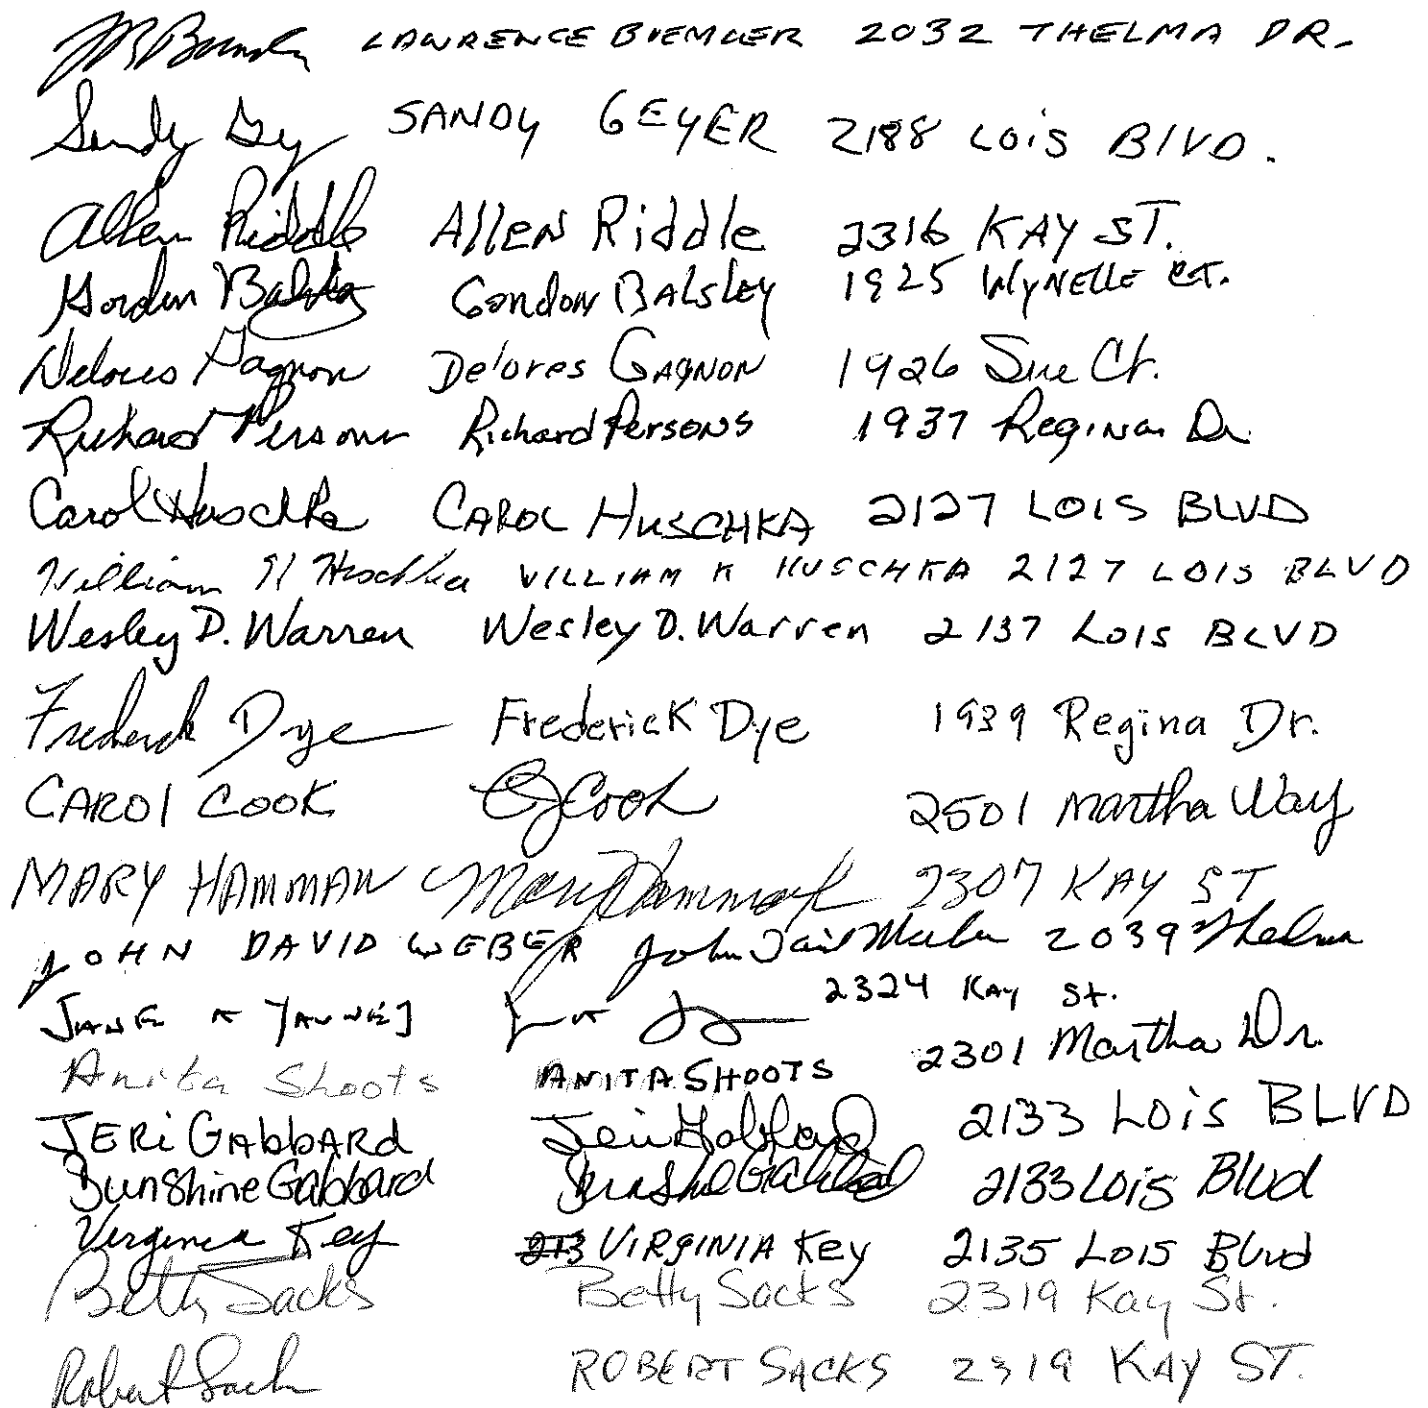 LAWRENCE BUEMLER 2032 THELMA DR.
Sandy Gey SANDY GEYER 2188 LOIS BLVD.
Allen Riddle Allen Riddle 2316 KAY ST.
Gordon Balsley Gordon BALSLEY 1925 WYNELLE CT.
Delores Gagnon Delores GAGNON 1926 Sue Ct.
Richard Persons Richard Persons 1937 Regina Dr.
Carol Huschka CAROL HUSCHKA 2127 LOIS BLVD
William H Huschka WILLIAM H HUSCHKA 2127 LOIS BLVD
Wesley D. Warren Wesley D. Warren 2137 LOIS BLVD
Frederick Dye Frederick Dye 1939 Regina Dr.
CAROL COOK CJ Cook 2501 Martha Way
MARY HAMMAN Mary Hamman 2307 KAY ST
JOHN DAVID WEBER John David Weber 2039 Thelma
JANE K 2324 KAY St.
Anita Shoots ANITA SHOOTS 2301 Martha Dr.
JERI GABBARD Jeri Gabbard 2133 LOIS BLVD
Sunshine Gabbard Sunshine Gabbard 2133 Lois Blvd
Virginia Key 213 VIRGINIA Key 2135 LOIS Blvd
Betty Sacks Betty Sacks 2319 Kay St.
Robert Sacks ROBERT SACKS 2319 KAY ST.